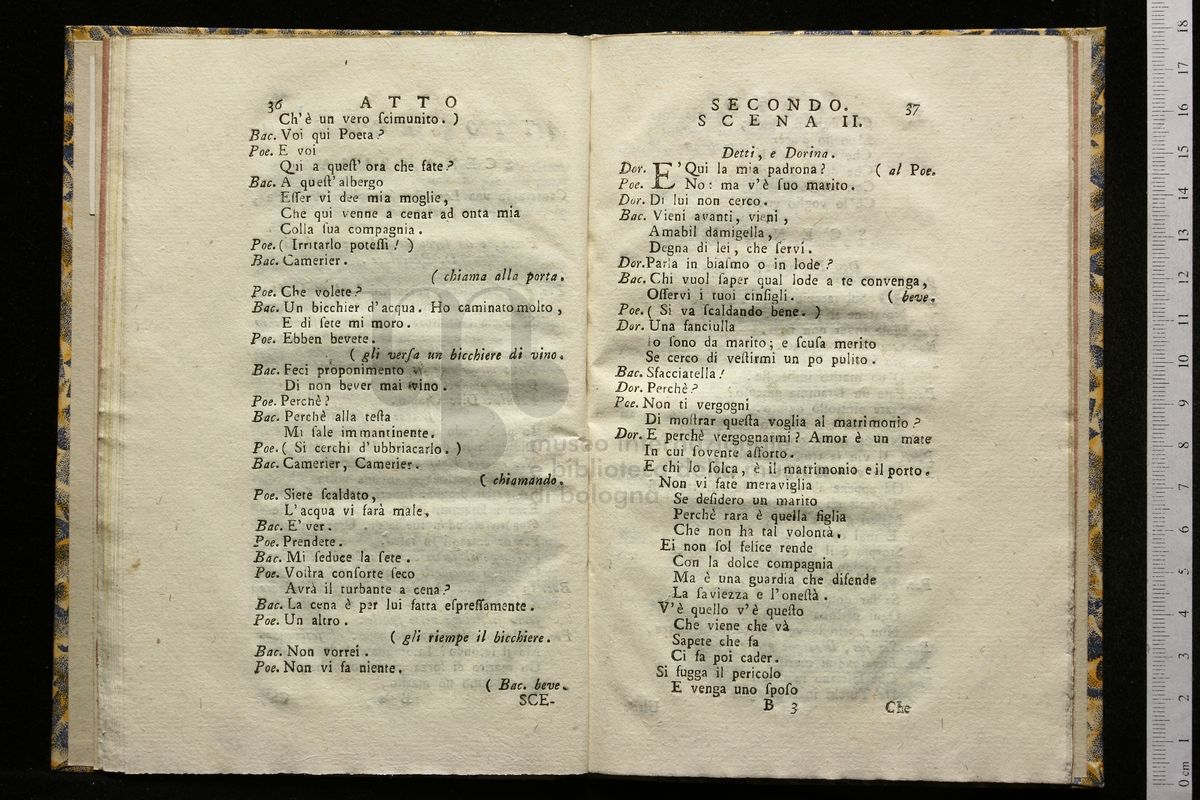 36 ATTO
Ch'è un vero ſcimunito. )
Bac. Voi qui Poeta?
Poe. E voi
Qui a queſt' ora che fate?
Bac. A queſt' albergo
Eſſer vi dee mia moglie,
Che qui venne a cenar ad onta mia
Colla ſua compagnia.
Poe. ( Irritarlo poteſſi! )
Bac. Camerier.
( chiama alla porta.
Poe. Che volete?
Bac. Un bicchier d'acqua. Ho caminato molto,
E di ſete mi moro.
Poe. Ebben bevete.
( gli verſa un bicchiere di vino.
Bac. Feci proponimento
Di non bever mai vino.
Poe. Perchè?
Bac. Perchè alla teſta
Mi ſale immantinente.
Poe. ( Si cerchi d'ubbriacarlo. )
Bac. Camerier, Camerier.
( chiamando.
Poe. Siete ſcaldato,
L'acqua vi farà male,
Bac. E' ver.
Poe. Prendete.
Bac. Mi ſeduce la ſete.
Poe. Voſtra conſorte ſeco
Avrà il turbante a cena?
Bac. La cena è per lui fatta eſpreſſamente.
Poe. Un altro.
( gli riempe il bicchiere.
Bac. Non vorrei.
Poe. Non vi fa niente.
( Bac. beve.
SCE-
SECONDO. 37
SCENA II.
Detti, e Dorina.
Dor. E' Qui la mia padrona? ( al Poe.
Poe. No: ma v'è ſuo marito.
Dor. Di lui non cerco.
Bac. Vieni avanti, vieni,
Amabil damigella,
Degna di lei, che ſervi.
Dor. Parla in biaſmo o in lode?
Bac. Chi vuol ſaper qual lode a te convenga,
Oſſervi i tuoi cinſigli. ( beve.
Poe. ( Si va ſcaldando bene. )
Dor. Una fanciulla
Io ſono da marito; e ſcuſa merito
Se cerco di veſtirmi un po pulito.
Bac. Sfacciatella!
Dor. Perchè?
Poe. Non ti vergogni
Di moſtrar queſta voglia al matrimonio?
Dor. E perchè vergognarmi? Amor è un mare
In cui ſovente aſſorto.
E chi lo ſolca, è il matrimonio e il porto.
Non vi fate meraviglia
Se deſidero un marito
Perchè rara è quella figlia
Che non ha tal volontà.
Ei non ſol felice rende
Con la dolce compagnia
Ma è una guardia che difende
La ſaviezza e l'oneſtà.
V'è quello v'è queſto
Che viene che và
Sapete che fa
Ci fa poi cader.
Si fugga il pericolo
E venga uno ſpoſo
B 3 Che